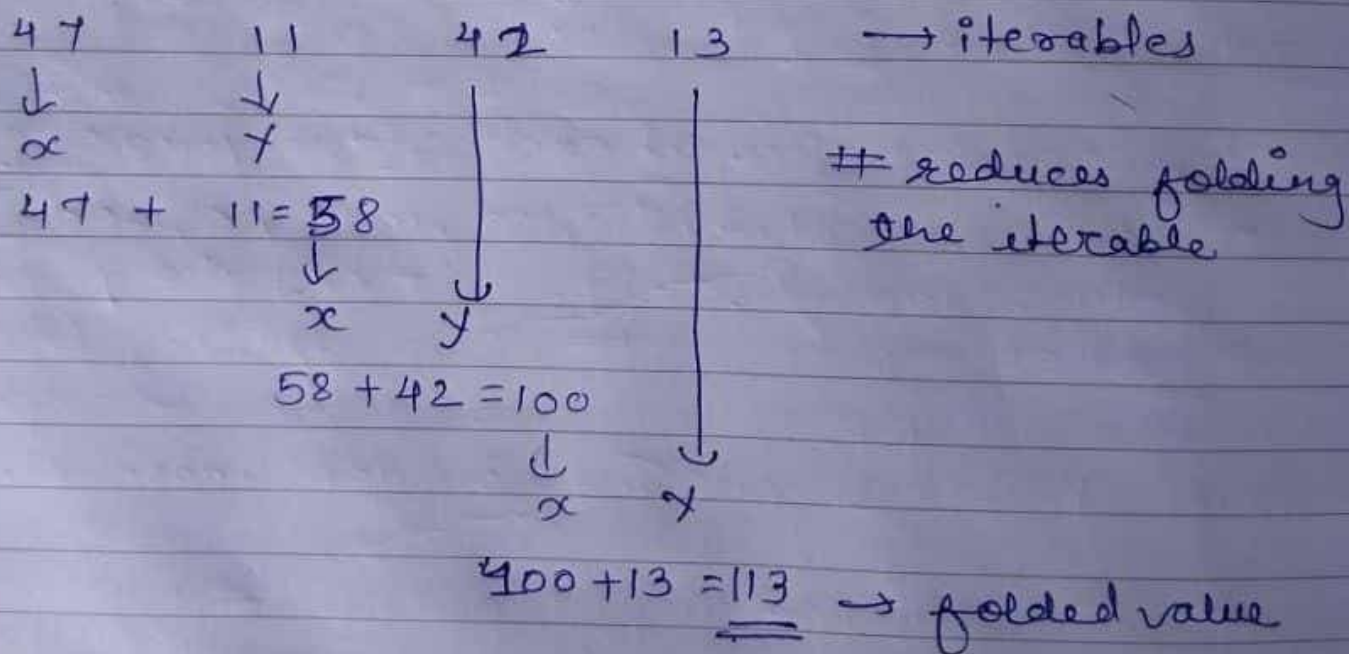 47 11 42 13 → iterables
↓ ↓
x y
# reduces folding
47 + 11 = 58
the iterable
↓
x y
58 + 42 = 100
↓
x y
100 + 13 = 113 → folded value